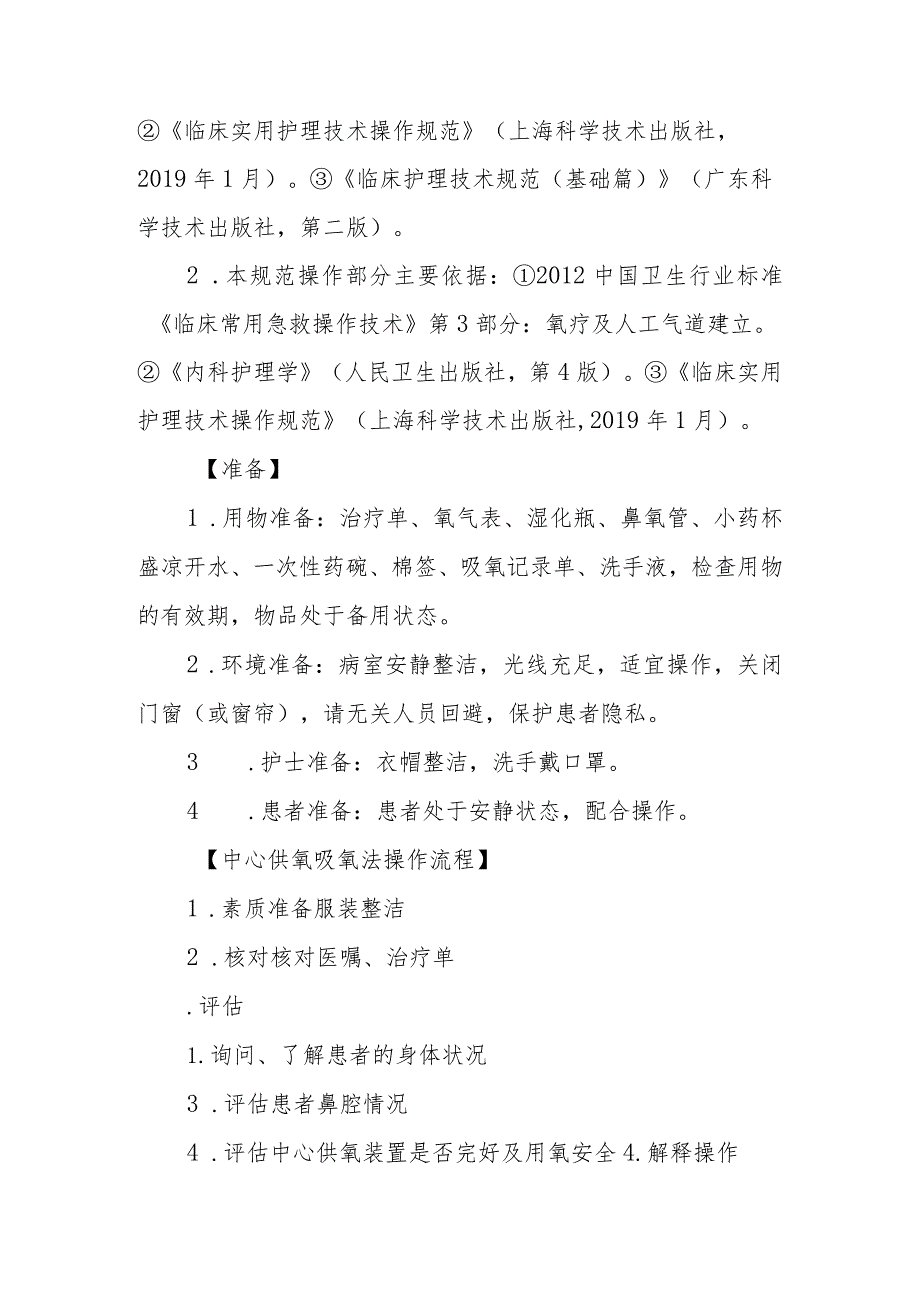 ②《临床实用护理技术操作规范》（上海科学技术出版社，
2019 年 1 月）。③《临床护理技术规范（基础篇）》（广东科
学技术出版社，第二版）。
2 .本规范操作部分主要依据：①2012 中国卫生行业标准
《临床常用急救操作技术》第 3 部分：氧疗及人工气道建立。
②《内科护理学》（人民卫生出版社，第 4 版）。③《临床实用
护理技术操作规范》（上海科学技术出版社,2019 年 1 月）。
【准备】
1 .用物准备：治疗单、氧气表、湿化瓶、鼻氧管、小药杯
盛凉开水、一次性药碗、棉签、吸氧记录单、洗手液，检查用物
的有效期，物品处于备用状态。
2 .环境准备：病室安静整洁，光线充足，适宜操作，关闭
门窗（或窗帘），请无关人员回避，保护患者隐私。
3 .护士准备：衣帽整洁，洗手戴口罩。
4 .患者准备：患者处于安静状态，配合操作。
【中心供氧吸氧法操作流程】
1 .素质准备服装整洁
2 .核对核对医嘱、治疗单
.评估
1.询问、了解患者的身体状况
3 .评估患者鼻腔情况
4 .评估中心供氧装置是否完好及用氧安全 4.解释操作